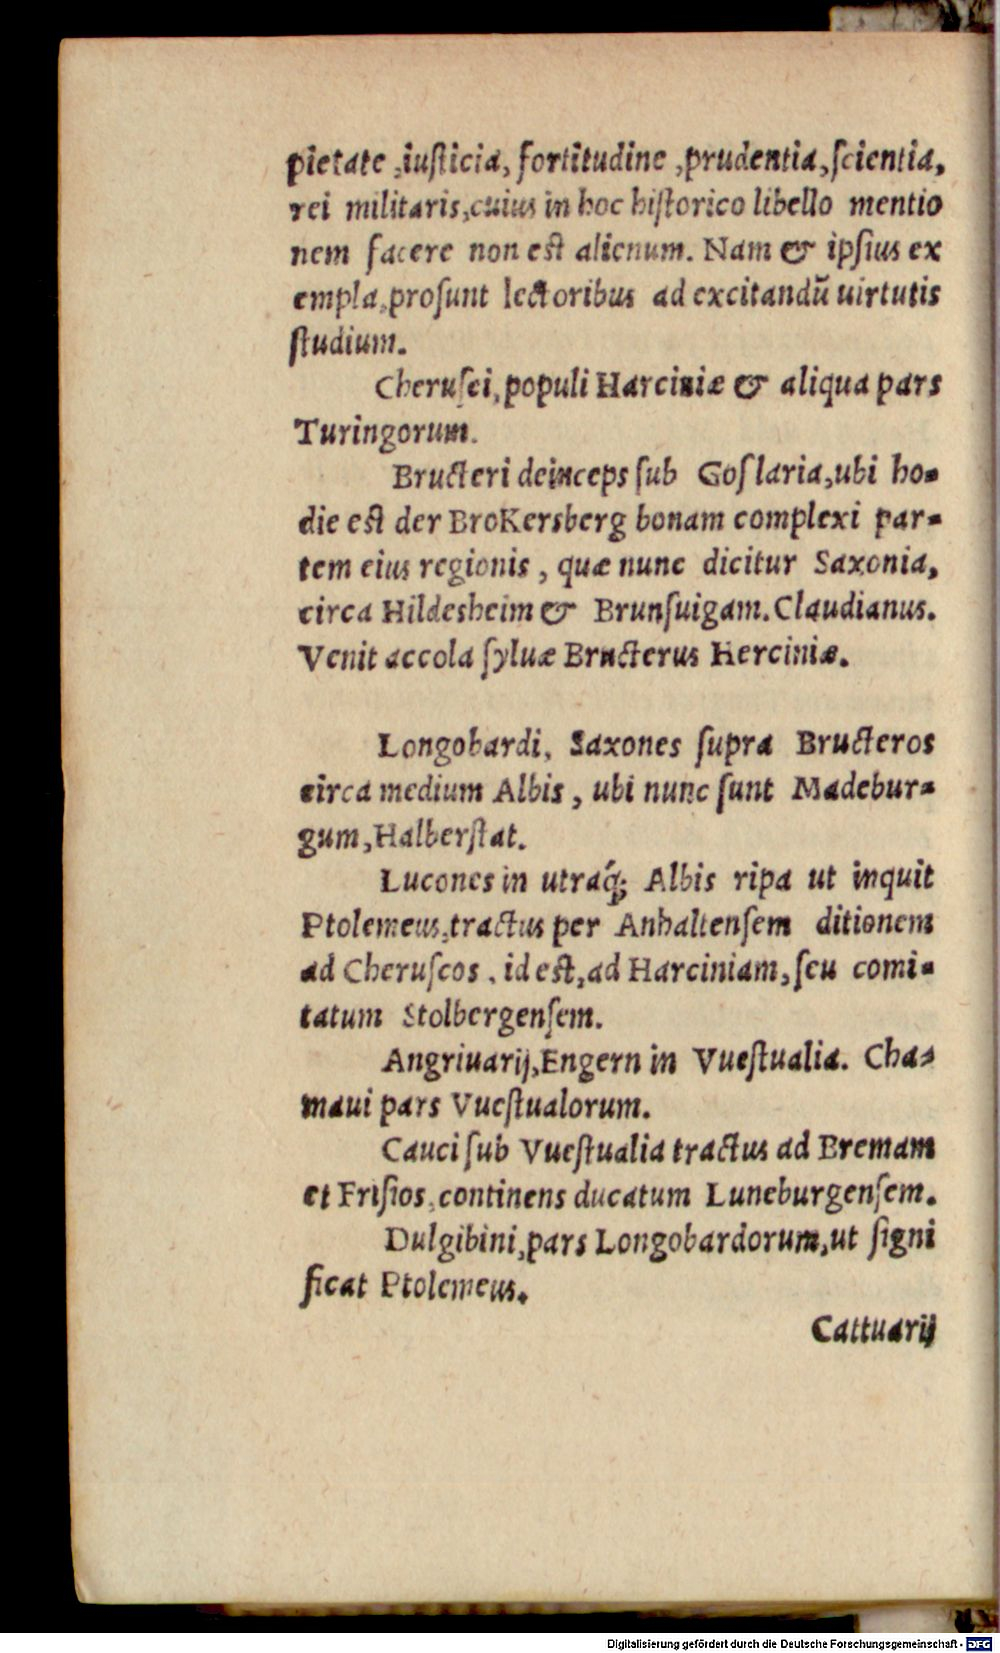 pietate ,iuſticia, fortitudine ,prudentia,ſcientia,
rei militaris,cuius in hoc hiſtorico libello mentio
nem facere non eſt alienum. Nam & ipſius ex
empla,proſunt lectoribus ad excitandū uirtutis
ſtudium.
Cheruſci,populi Harciniæ & aliqua pars
Turingorum.
Bructeri deinceps ſub Goſlaria,ubi ho-
die eſt der BroKersberg bonam complexi par-
tem eius regionis , quæ nunc dicitur Saxonia,
circa Hildesheim & Brunſuigam. Claudianus.
Venit accola ſyluæ Bructerus Herciniæ.
Longobardi, Saxones ſupra Bructeros
circa medium Albis , ubi nunc ſunt Madebur-
gum,Halberſtat.
Lucones in utraq́; Albis ripa ut inquit
Ptolemeus,tractus per Anhaltenſem ditionem
ad Cheruſcos , id eſt,ad Harciniam,ſeu comi-
tatum Stolbergenſem.
Angriuarij,Engern in Vueſtualia. Cha-
maui pars Vueſtualorum.
Cauci ſub Vueſtualia tractus ad Bremam
et Friſios,continens ducatum Luneburgenſem.
Dulgibini,pars Longobardorum,ut ſigni
ficat Ptolemeus.
Cattuarij
Digitalisierung gefördert durch die Deutsche Forschungsgemeinschaft - DFG